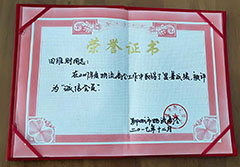 荣誉证书
田维财同志：
在2017年度物流商会工作中取得了显著成绩，被评
为“诚信会员”
二〇一七年十二月